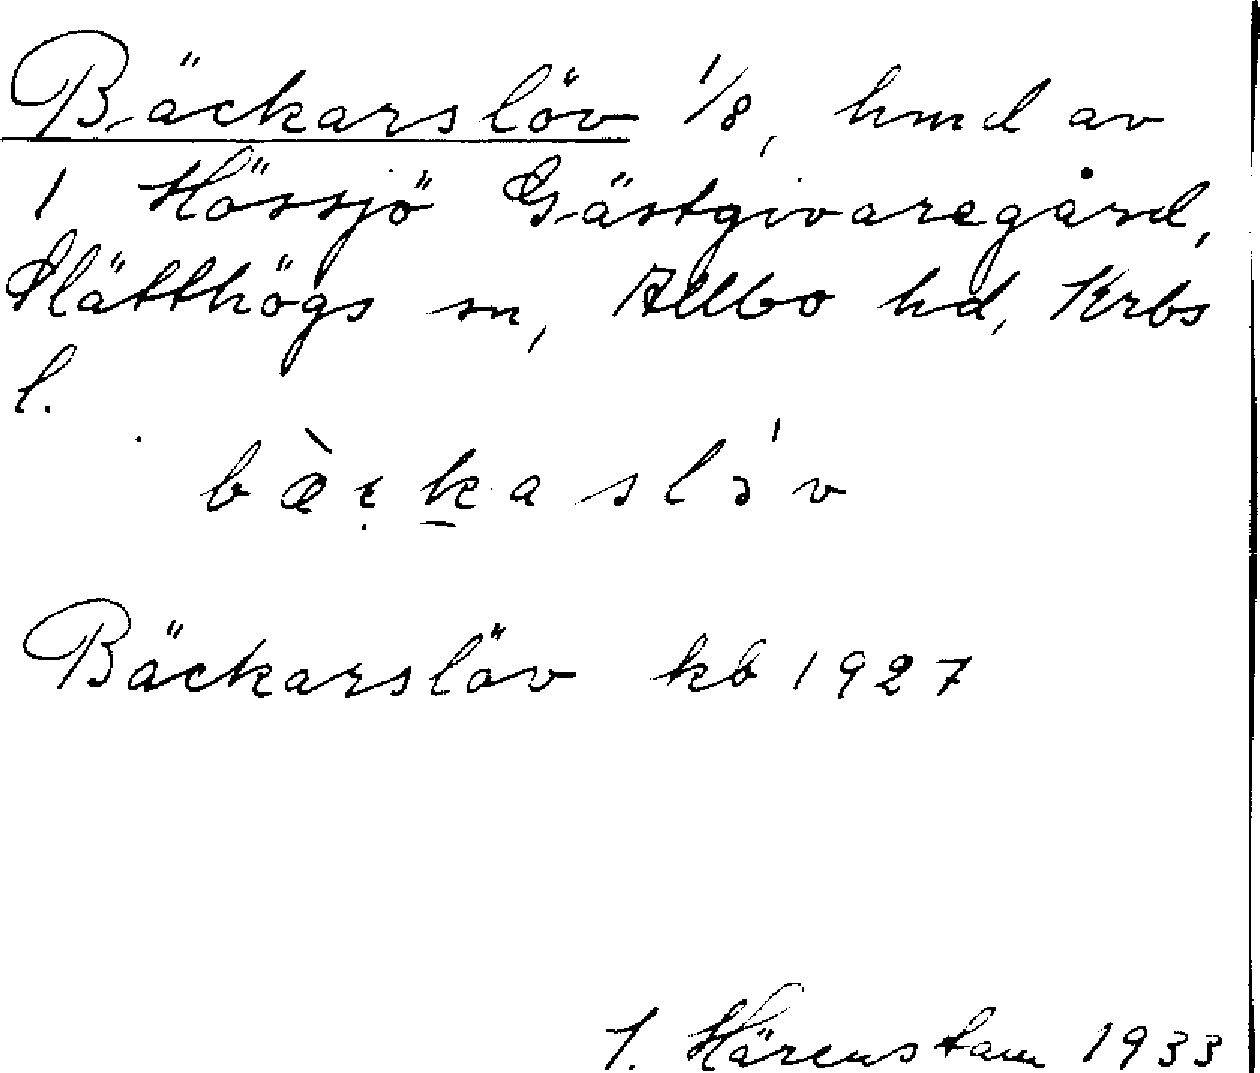 Bäckarslöv 1/8, hmd av
1 Hössjö Gästgivaregård,
Slätthögs sn, Allbo hd, Krbs
l.
Bäckarslöv kb 1927
J. Härenstam 1933